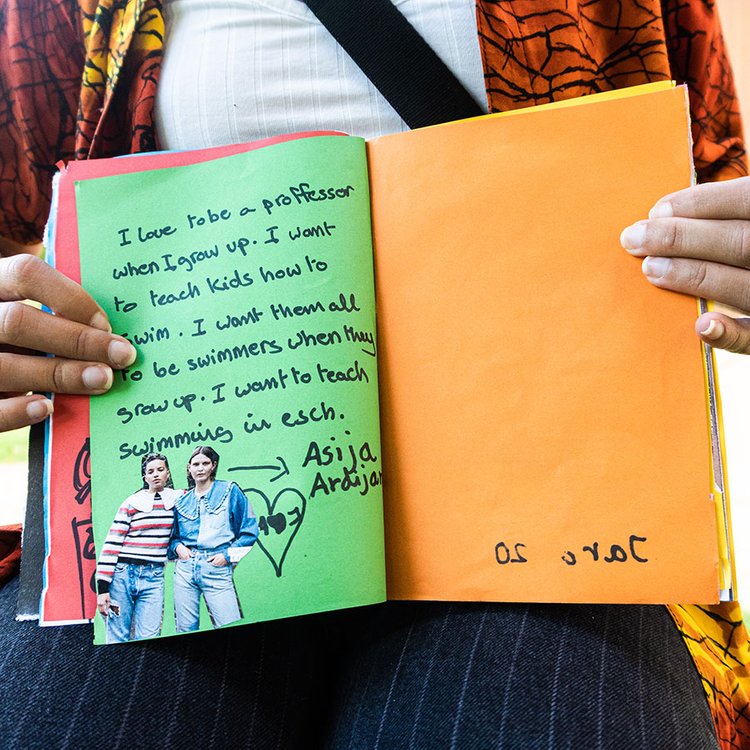 I love to be a proffessor
when I grow up. I want
to teach kids how to
swim. I want them all
to be swimmers when they
grow up. I want to teach
swimming in esch.
Asija
Ardijan